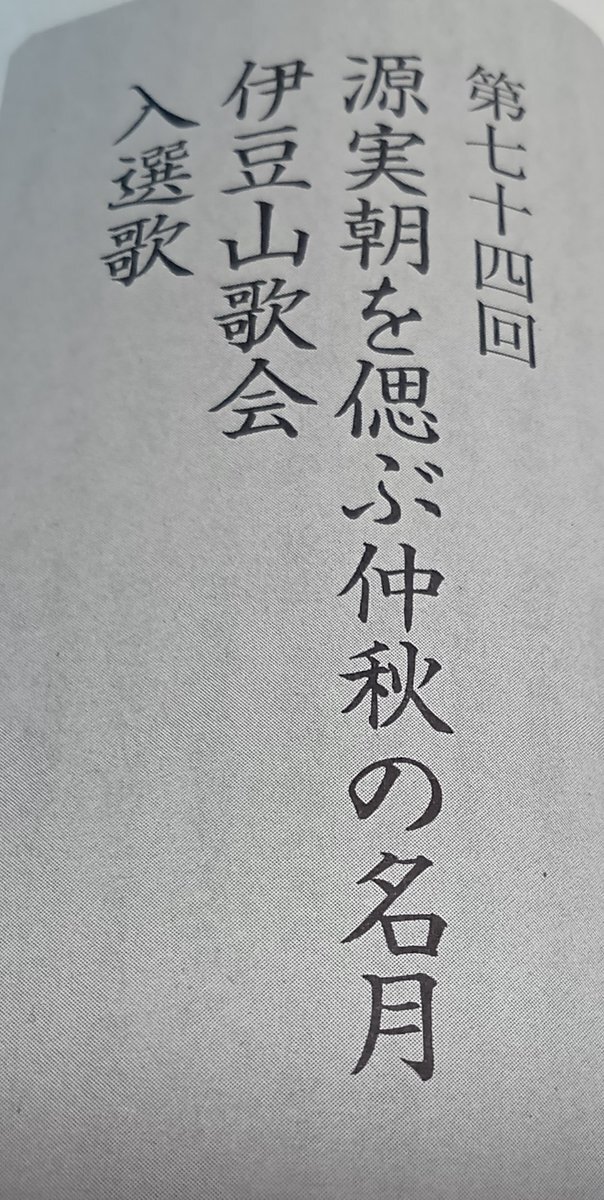 第七十四回
源実朝を偲ぶ仲秋の名月
伊豆山歌会
入選歌